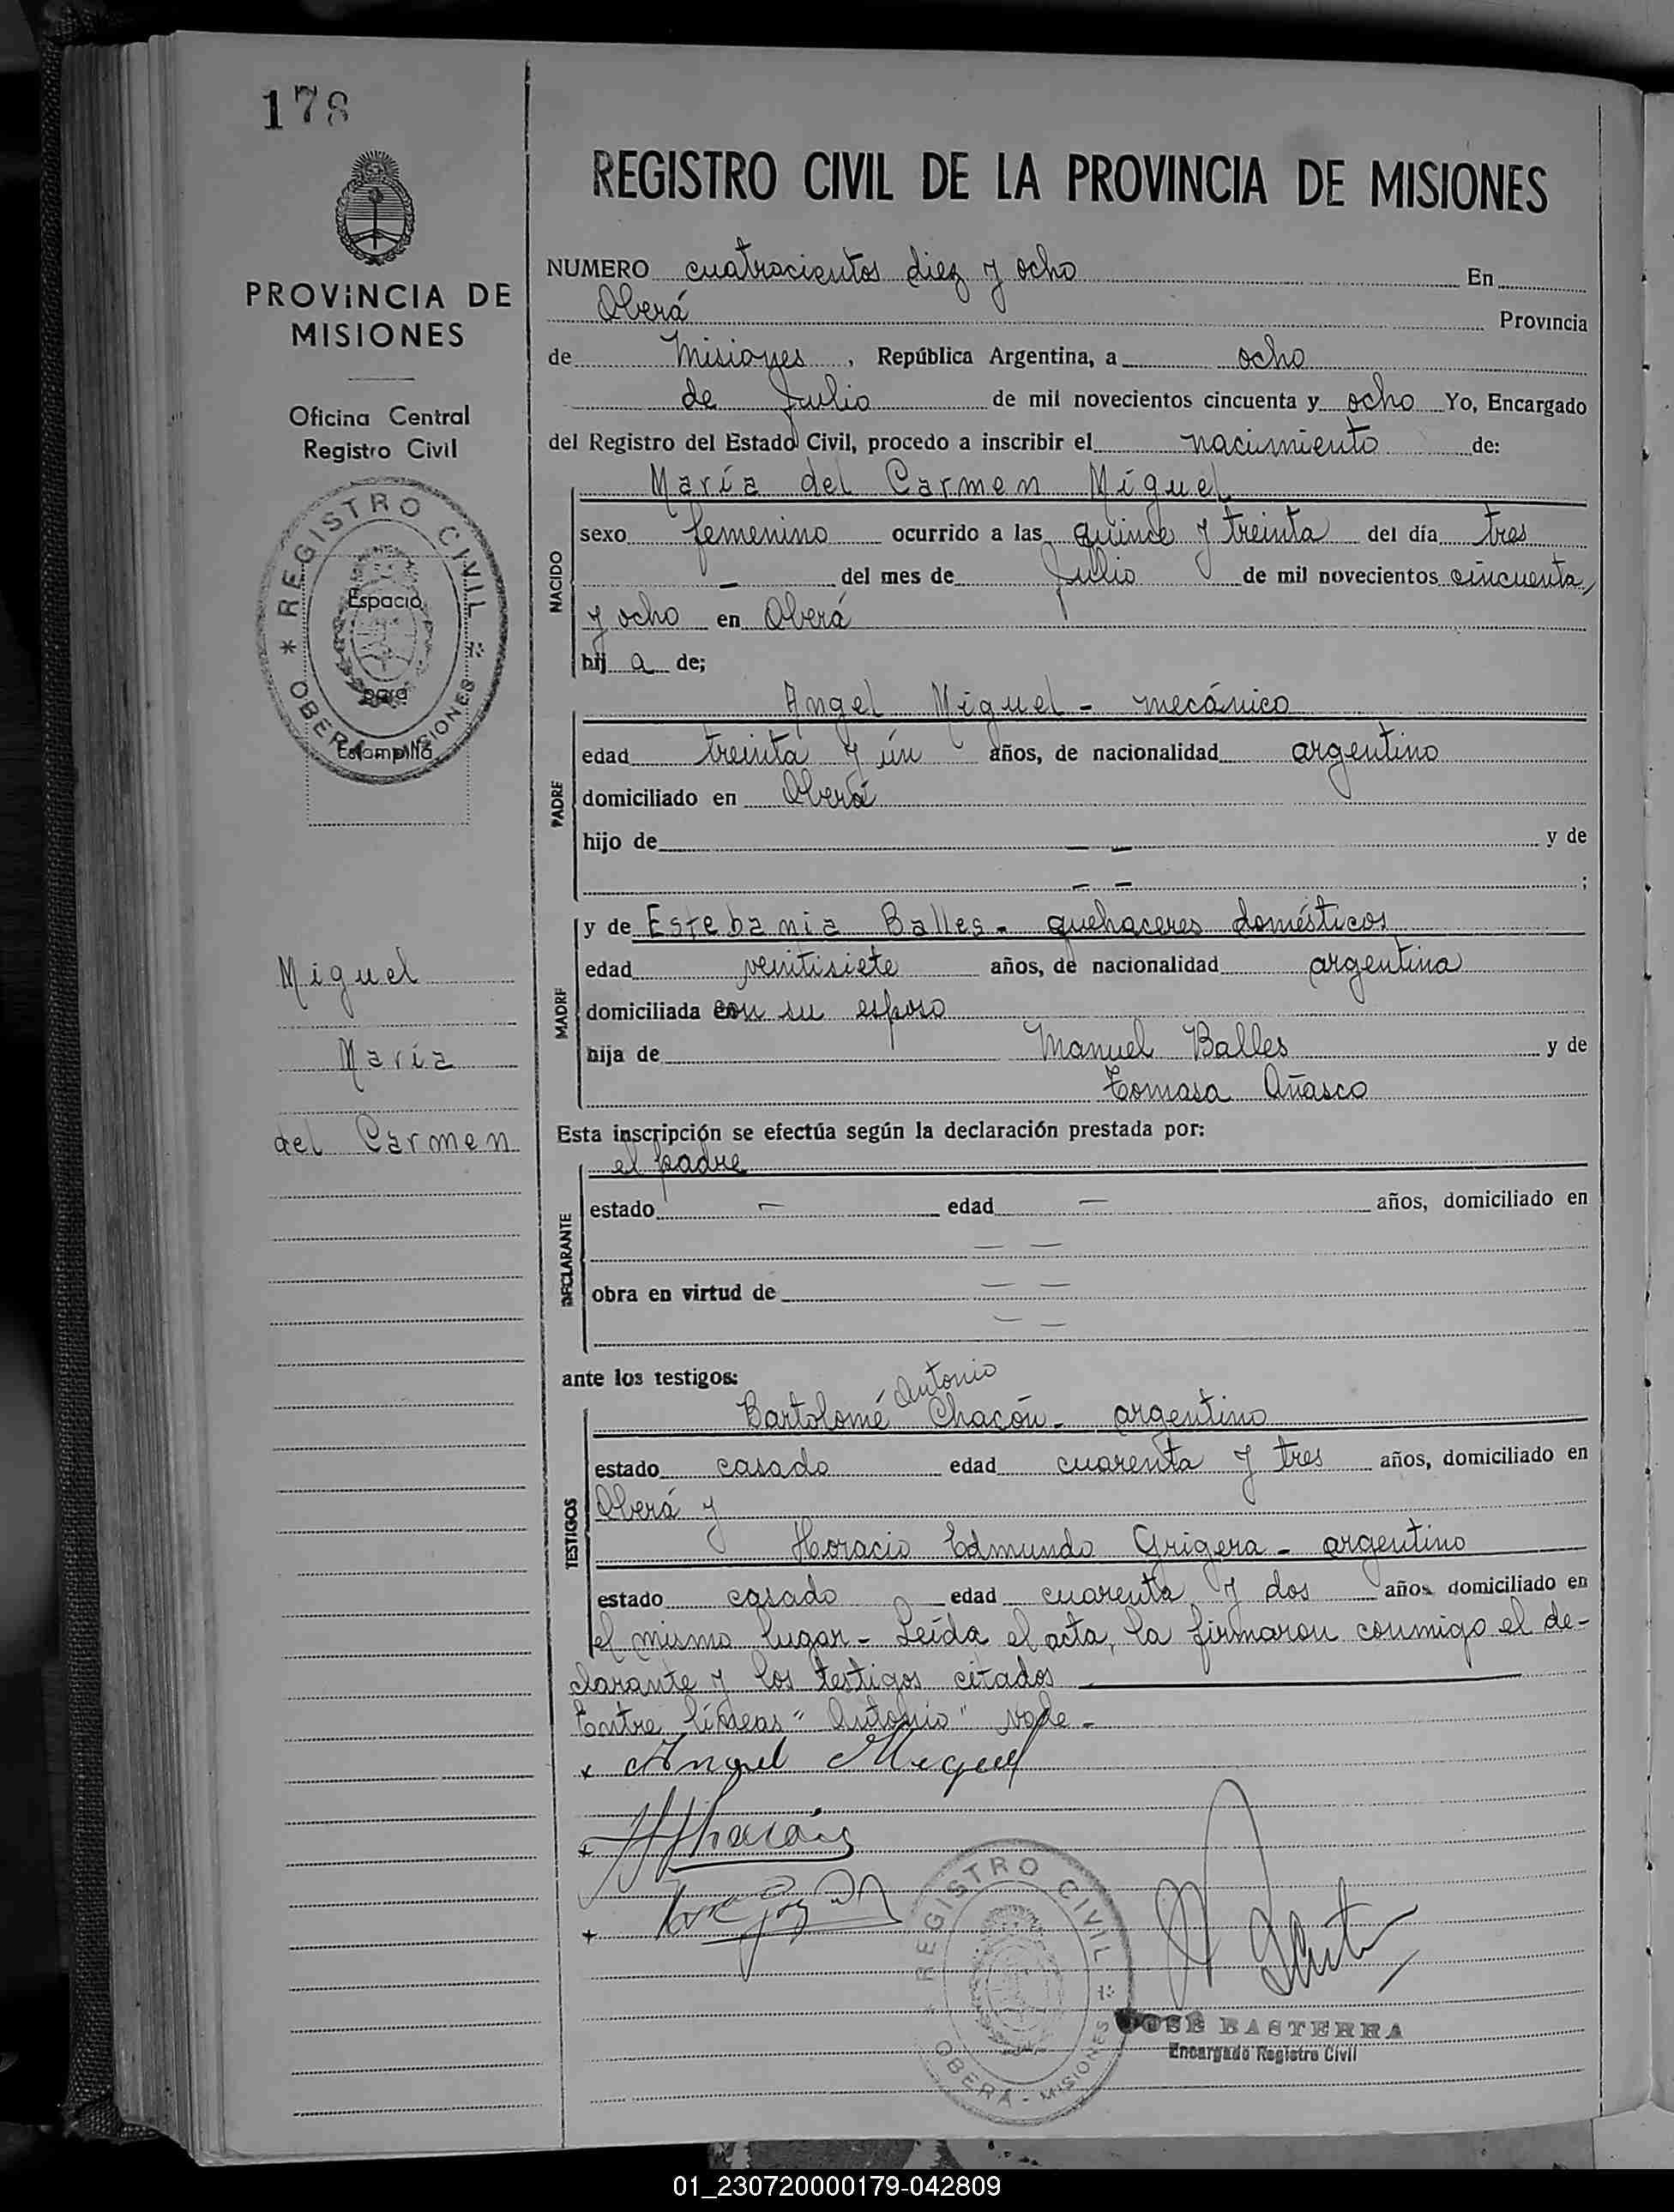 178
PROVINCIA DE
MISIONES
Oficina Central
Registro Civil
* REGISTRO CIVIL *
OBERA - MISIONES
Espacio
para
Estampilla
Miguel
María
del Carmen
REGISTRO CIVIL DE LA PROVINCIA DE MISIONES
NUMERO cuatrocientos diez y ocho En
Oberá Provincia
de Misiones, República Argentina, a ocho
de Julio de mil novecientos cincuenta y ocho Yo, Encargado
del Registro del Estado Civil, procedo a inscribir el nacimiento de:
María del Carmen Miguel
NACIDO
sexo femenino ocurrido a las quince y treinta del día tres
— del mes de Julio de mil novecientos cincuenta
y ocho en Oberá
hij a de;
Angel Miguel - mecánico
PADRE
edad treinta y ún años, de nacionalidad argentino
domiciliado en Oberá
hijo de — — y de
— — ;
y de Estebania Balles - quehaceres domésticos
MADRE
edad veintisiete años, de nacionalidad argentina
domiciliada con su esposo
hija de Manuel Balles y de
Tomasa Añasco
Esta inscripción se efectúa según la declaración prestada por:
el padre
DECLARANTE
estado — edad — años, domiciliado en
— —
obra en virtud de — —
— —
ante los testigos:
Antonio
Bartolomé Chacón - argentino
TESTIGOS
estado casado edad cuarenta y tres años, domiciliado en
Oberá y
Horacio Edmundo Grigera - argentino
estado casado edad cuarenta y dos años domiciliado en
el mismo lugar - Leída el acta, la firmaron conmigo el de-
clarante y los testigos citados
Entre líneas "Antonio" vale -
x Angel Miguel
REGISTRO CIVIL *
OBERA - MISIONES
JOSÉ BASTERRA
Encargado Registro Civil
01_230720000179-042809